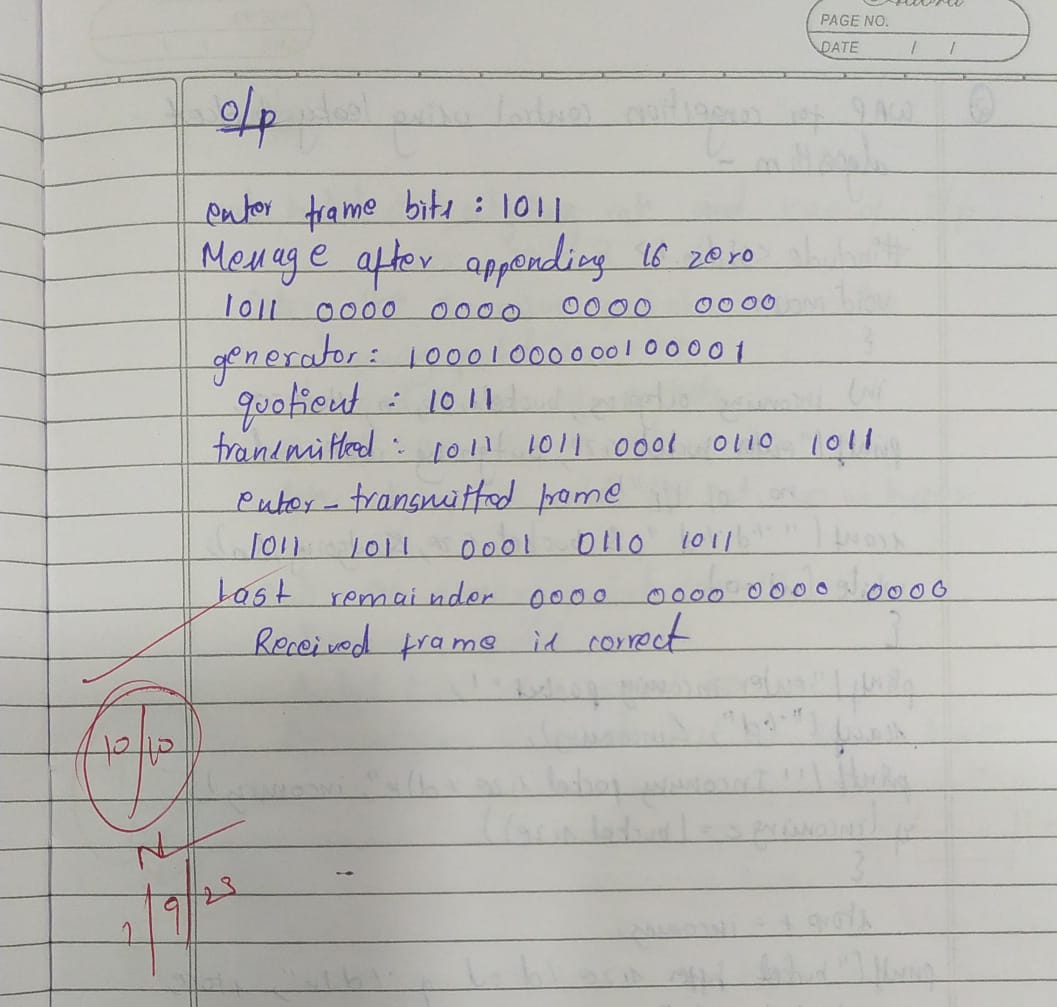 PAGE NO.
DATE / /
O/p
enter frame bits : 1011
Message after appending 16 zero
1011 0000 0000 0000 0000
generator : 10001000000100001
quotient : 1011
transmitted : 1011 1011 0001 0110 1011
enter - transmitted frame
1011 1011 0001 0110 1011
Last remainder 0000 0000 0000 0000
Received frame is correct
10/10
9/23